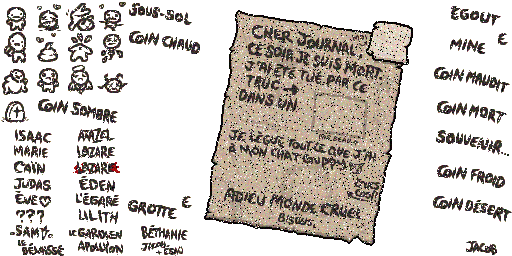 SOUS-SOL
COIN CHAUD
COIN SOMBRE
ISAAC
MARIE
CAÏN
JUDAS
ÈVE♡
???
SAM
LE DÉLAISSÉ
AZAZEL
LAZARE
LAZARE
ÉDEN
L'ÉGARÉ
LILITH
LE GARDIEN
APOLLYON
GROTTE
È
BÉTHANIE
JACOB + ESAÜ
CHER JOURNAL
CE SOIR JE SUIS MORT.
J'AI ÉTÉ TUÉ PAR CE
TRUC →
DANS UN
JE LÈGUE TOUT CE QUE J'AI
À MON CHAT GUPPY
ADIEU MONDE CRUEL
BISOUS.
ÉGOUT
È
MINE
COIN MAUDIT
COIN MORT
SOUVENIR...
COIN FROID
COIN DÉSERT
JACOB